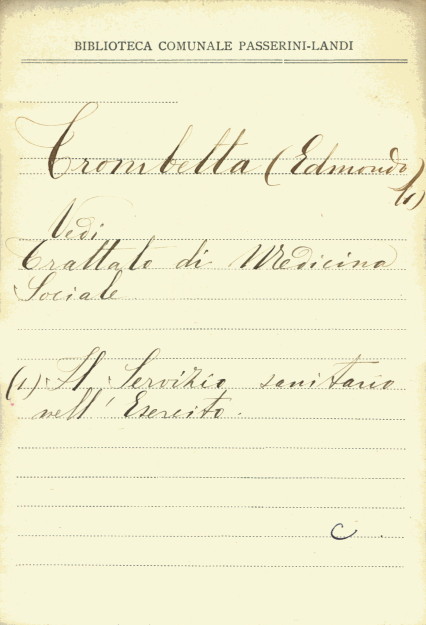 BIBLIOTECA COMUNALE PASSERINI-LANDI
Trombetta (Edmondo)
(1)
Vedi
Trattato di Medicina
Sociale
(1) Il Servizio sanitario
nell' Esercito.
C.